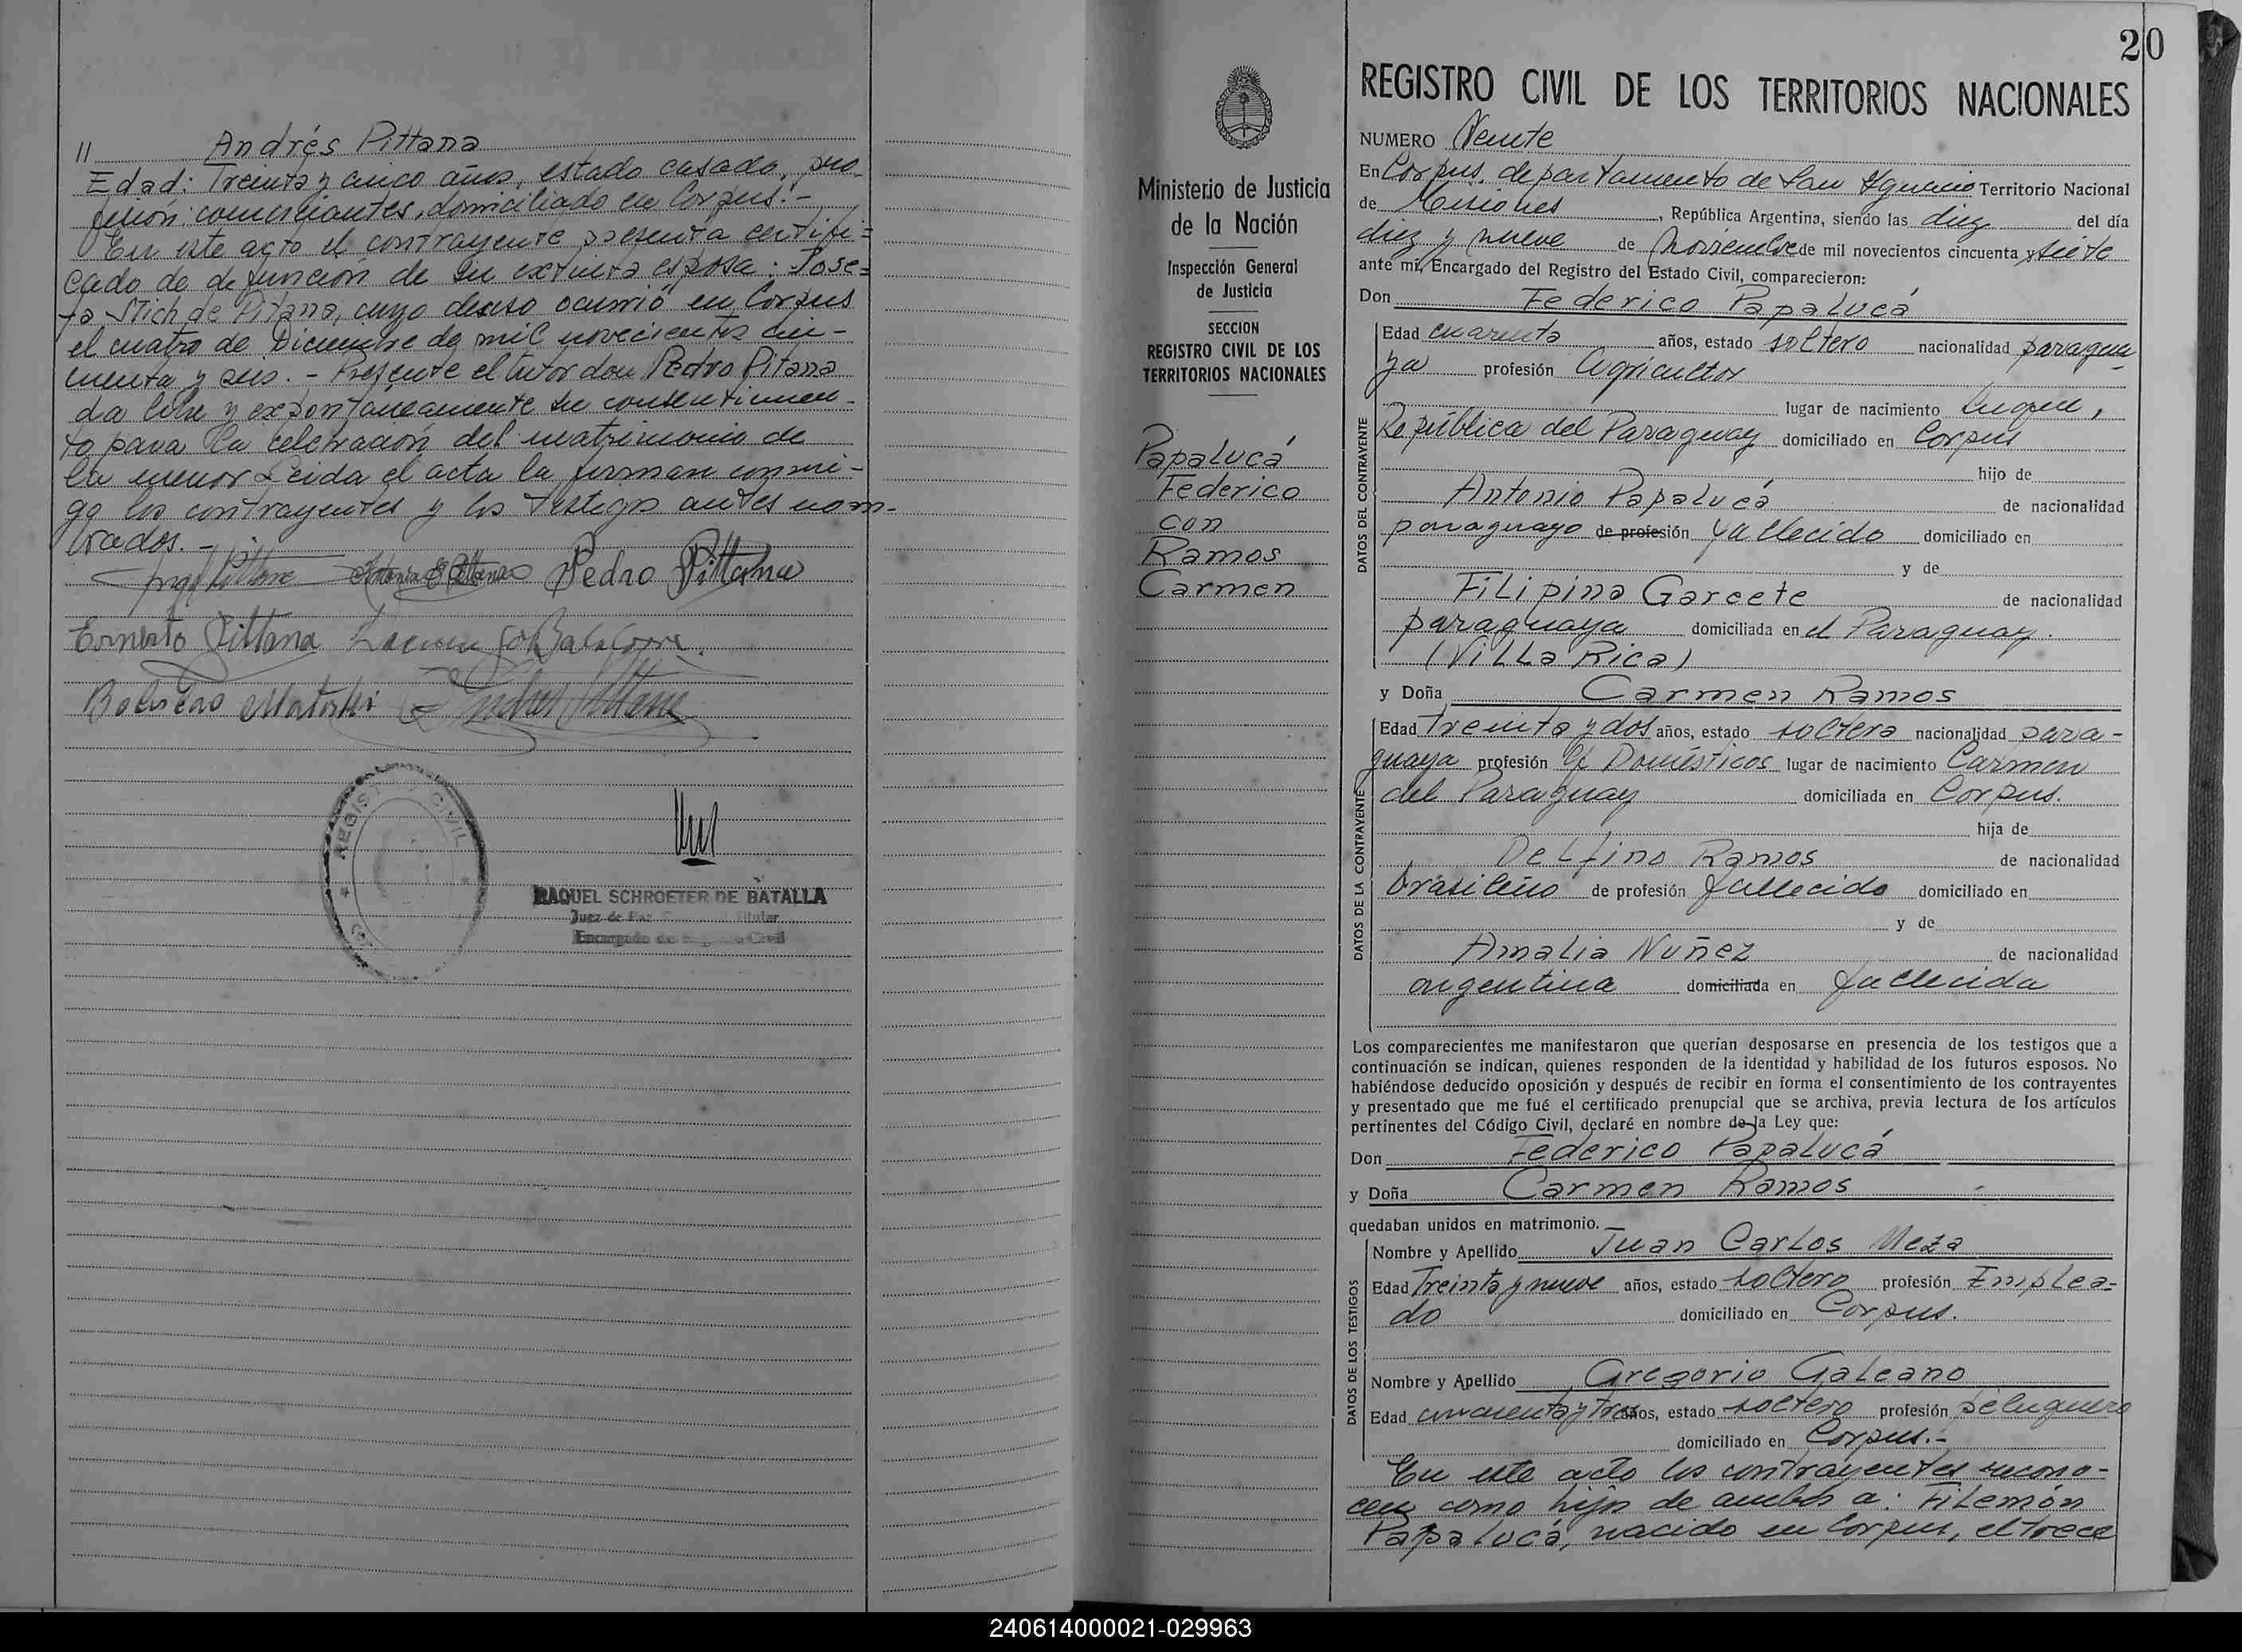 11 Andrés Pittana
Edad: Treinta y cinco años, estado casado, pro-
fesión: comerciantes, domiciliado en Corpus.-
En este acto el contrayente presenta certifi=
cado de defunción de su extinta esposa: Jose=
fa Stich de Pitana, cuyo deceso ocurrió en Corpus
el cuatro de Diciembre de mil novecientos cin-
cuenta y seis. - Presente el tutor don Pedro Pitana
da libre y expontáneamente su consentimien-
to para la celebración del matrimonio de
la menor Leida el acta la firman conmi-
go los contrayentes y los testigos antes nom-
brados. -
Pedro Pittana
Ernesto Pittana
Andres Pittana
REGISTRO CIVIL
RAQUEL SCHROETER DE BATALLA
Juez de Paz Titular
Encargado de Registro Civil
20
REGISTRO CIVIL DE LOS TERRITORIOS NACIONALES
Ministerio de Justicia
de la Nación
Inspección General
de Justicia
SECCION
REGISTRO CIVIL DE LOS
TERRITORIOS NACIONALES
Papalucá
Federico
con
Ramos
Carmen
NUMERO Veinte
En Corpus, departamento de San Ygnacio Territorio Nacional
de Misiones, República Argentina, siendo las diez del día
diez y nueve de Noviembre de mil novecientos cincuenta y siete
ante mí, Encargado del Registro del Estado Civil, comparecieron:
Don Federico Papalucá
DATOS DEL CONTRAYENTE
Edad cuarenta años, estado soltero nacionalidad paragua
ya profesión Agricultor
lugar de nacimiento Luque,
República del Paraguay domiciliado en Corpus
hijo de
Antonio Papalucá de nacionalidad
paraguayo de profesión fallecido domiciliado en
y de
Filipina Garcete de nacionalidad
paraguaya domiciliada en el Paraguay.
(Villa Rica)
y Doña Carmen Ramos
DATOS DE LA CONTRAYENTE
Edad Treinta y dos años, estado soltera nacionalidad para-
guaya profesión Q. Domésticos lugar de nacimiento Carmen
del Paraguay domiciliada en Corpus.
hija de
Delfino Ramos de nacionalidad
brasileño de profesión fallecido domiciliado en
y de
Amalia Nuñez de nacionalidad
argentina domiciliada en fallecida
Los comparecientes me manifestaron que querían desposarse en presencia de los testigos que a
continuación se indican, quienes responden de la identidad y habilidad de los futuros esposos. No
habiéndose deducido oposición y después de recibir en forma el consentimiento de los contrayentes
y presentado que me fué el certificado prenupcial que se archiva, previa lectura de los artículos
pertinentes del Código Civil, declaré en nombre de la Ley que:
Don Federico Papalucá
y Doña Carmen Ramos
quedaban unidos en matrimonio.
DATOS DE LOS TESTIGOS
Nombre y Apellido Juan Carlos Meza
Edad Treinta y nueve años, estado soltero profesión Emplea-
do domiciliado en Corpus.
Nombre y Apellido Gregorio Galeano
Edad cincuenta y tres años, estado soltero profesión peluquero
domiciliado en Corpus.-
En este acto los contrayentes recono-
cen como hijo de ambos a: Filemón
Papalucá, nacido en Corpus, el trece
240614000021-029963